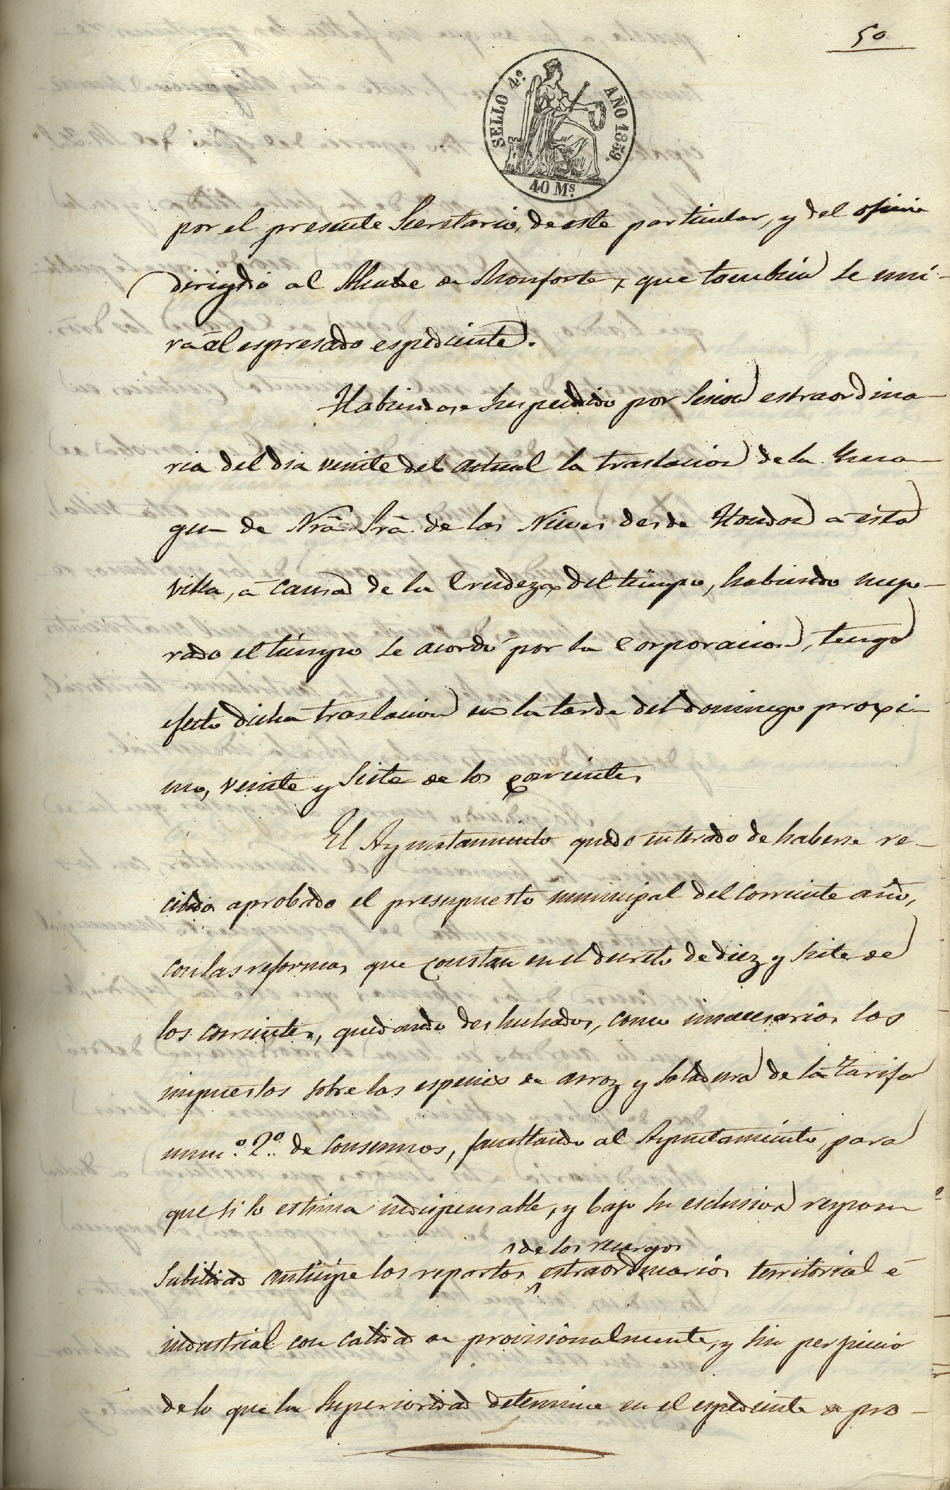 50
SELLO 4.º AÑO 1859.
40 Ms
por el presente Secretario, de este particular, y del oficio
dirigido al Alcalde de Monforte, que tambien se uni-
rá al espresado espediente.
Habiendose suspendido por sesion estraordina-
ria del dia veinte del actual la traslacion de la Yma-
gen de Ntrã. Srã. de las Nieves desde Hondon a esta
villa, á causa de la Crudeza del tiempo, habiendo mejo-
rado el tiempo se acordó por la Corporacion, tenga
efecto dicha traslacion en la tarde del domingo proxi-
mo, veinte y siete de los corrientes
El Ayuntamiento quedó enterado de haberse re-
cibido aprobado el presupuesto municipal del corriente año,
con las reformas que constan en el decreto de diez y siete de
los corrientes, quedando deshechados, como innecesarios los
impuestos sobre las especies de arroz y saladura de la tarifa
num.º 2.º de consumos, facultando al Ayuntamiento, para
que si lo estima indispensable, y bajo su esclusiva respon
sabilidad anticipe los repartos ^de los recargos estraordinarios territorial é
industrial con calidad de provisionalmente, y sin perjuicio
de lo que la Superioridad determine en el espediente de pro-